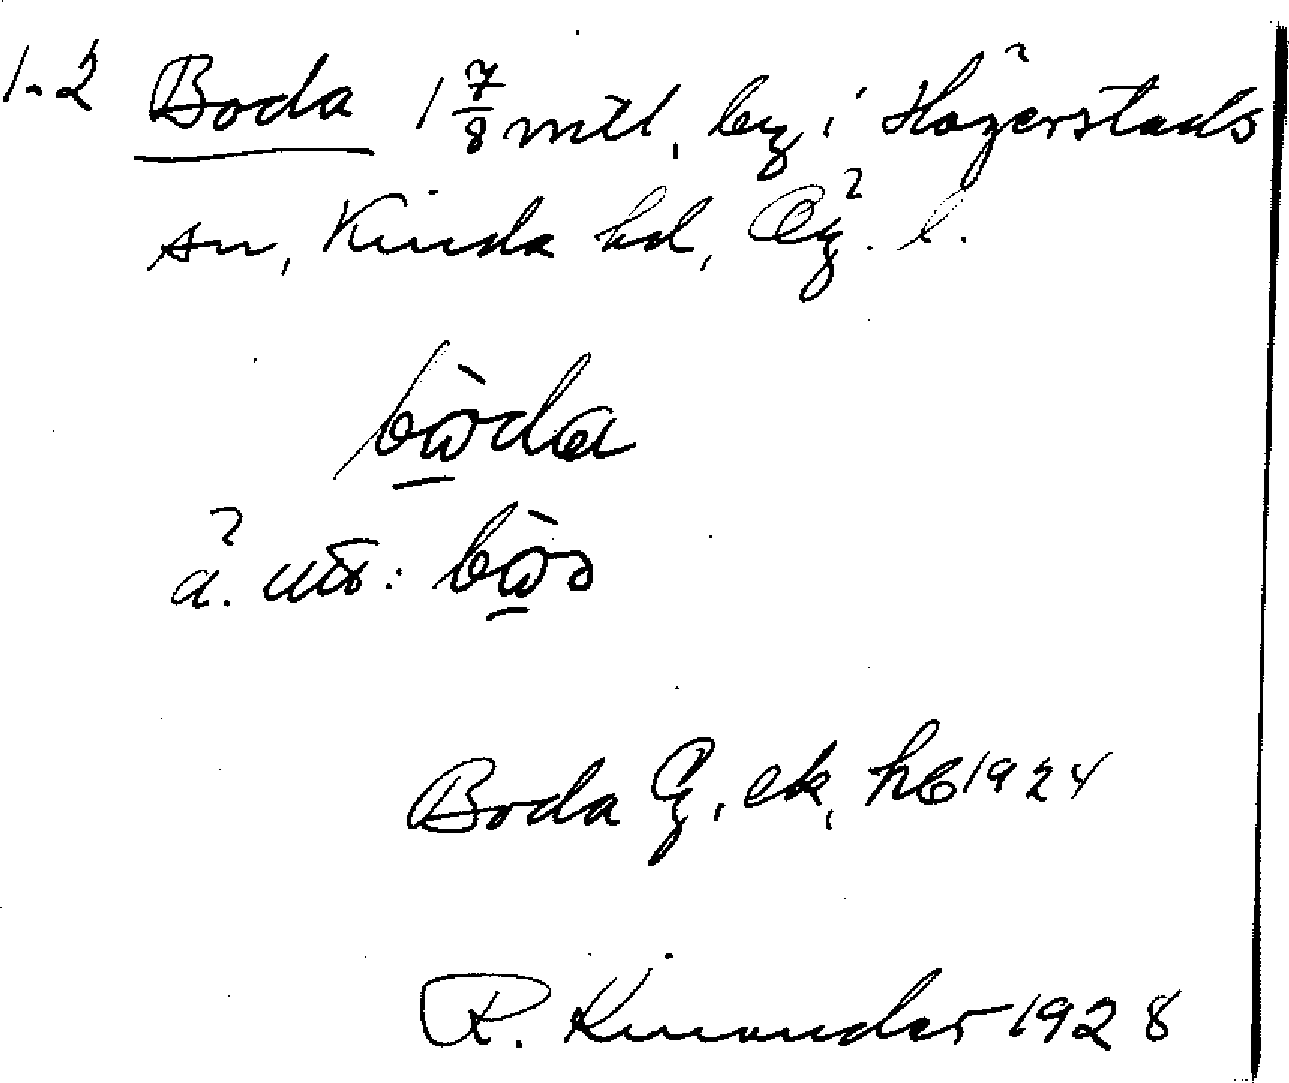 1-2 Boda 1 7/8 mtl, by i Hägerstads
sn, Kinda hd, Ög. l.
bὼda
ä. utt:
Boda G, ek, hb 1924
R. Kinander 1928